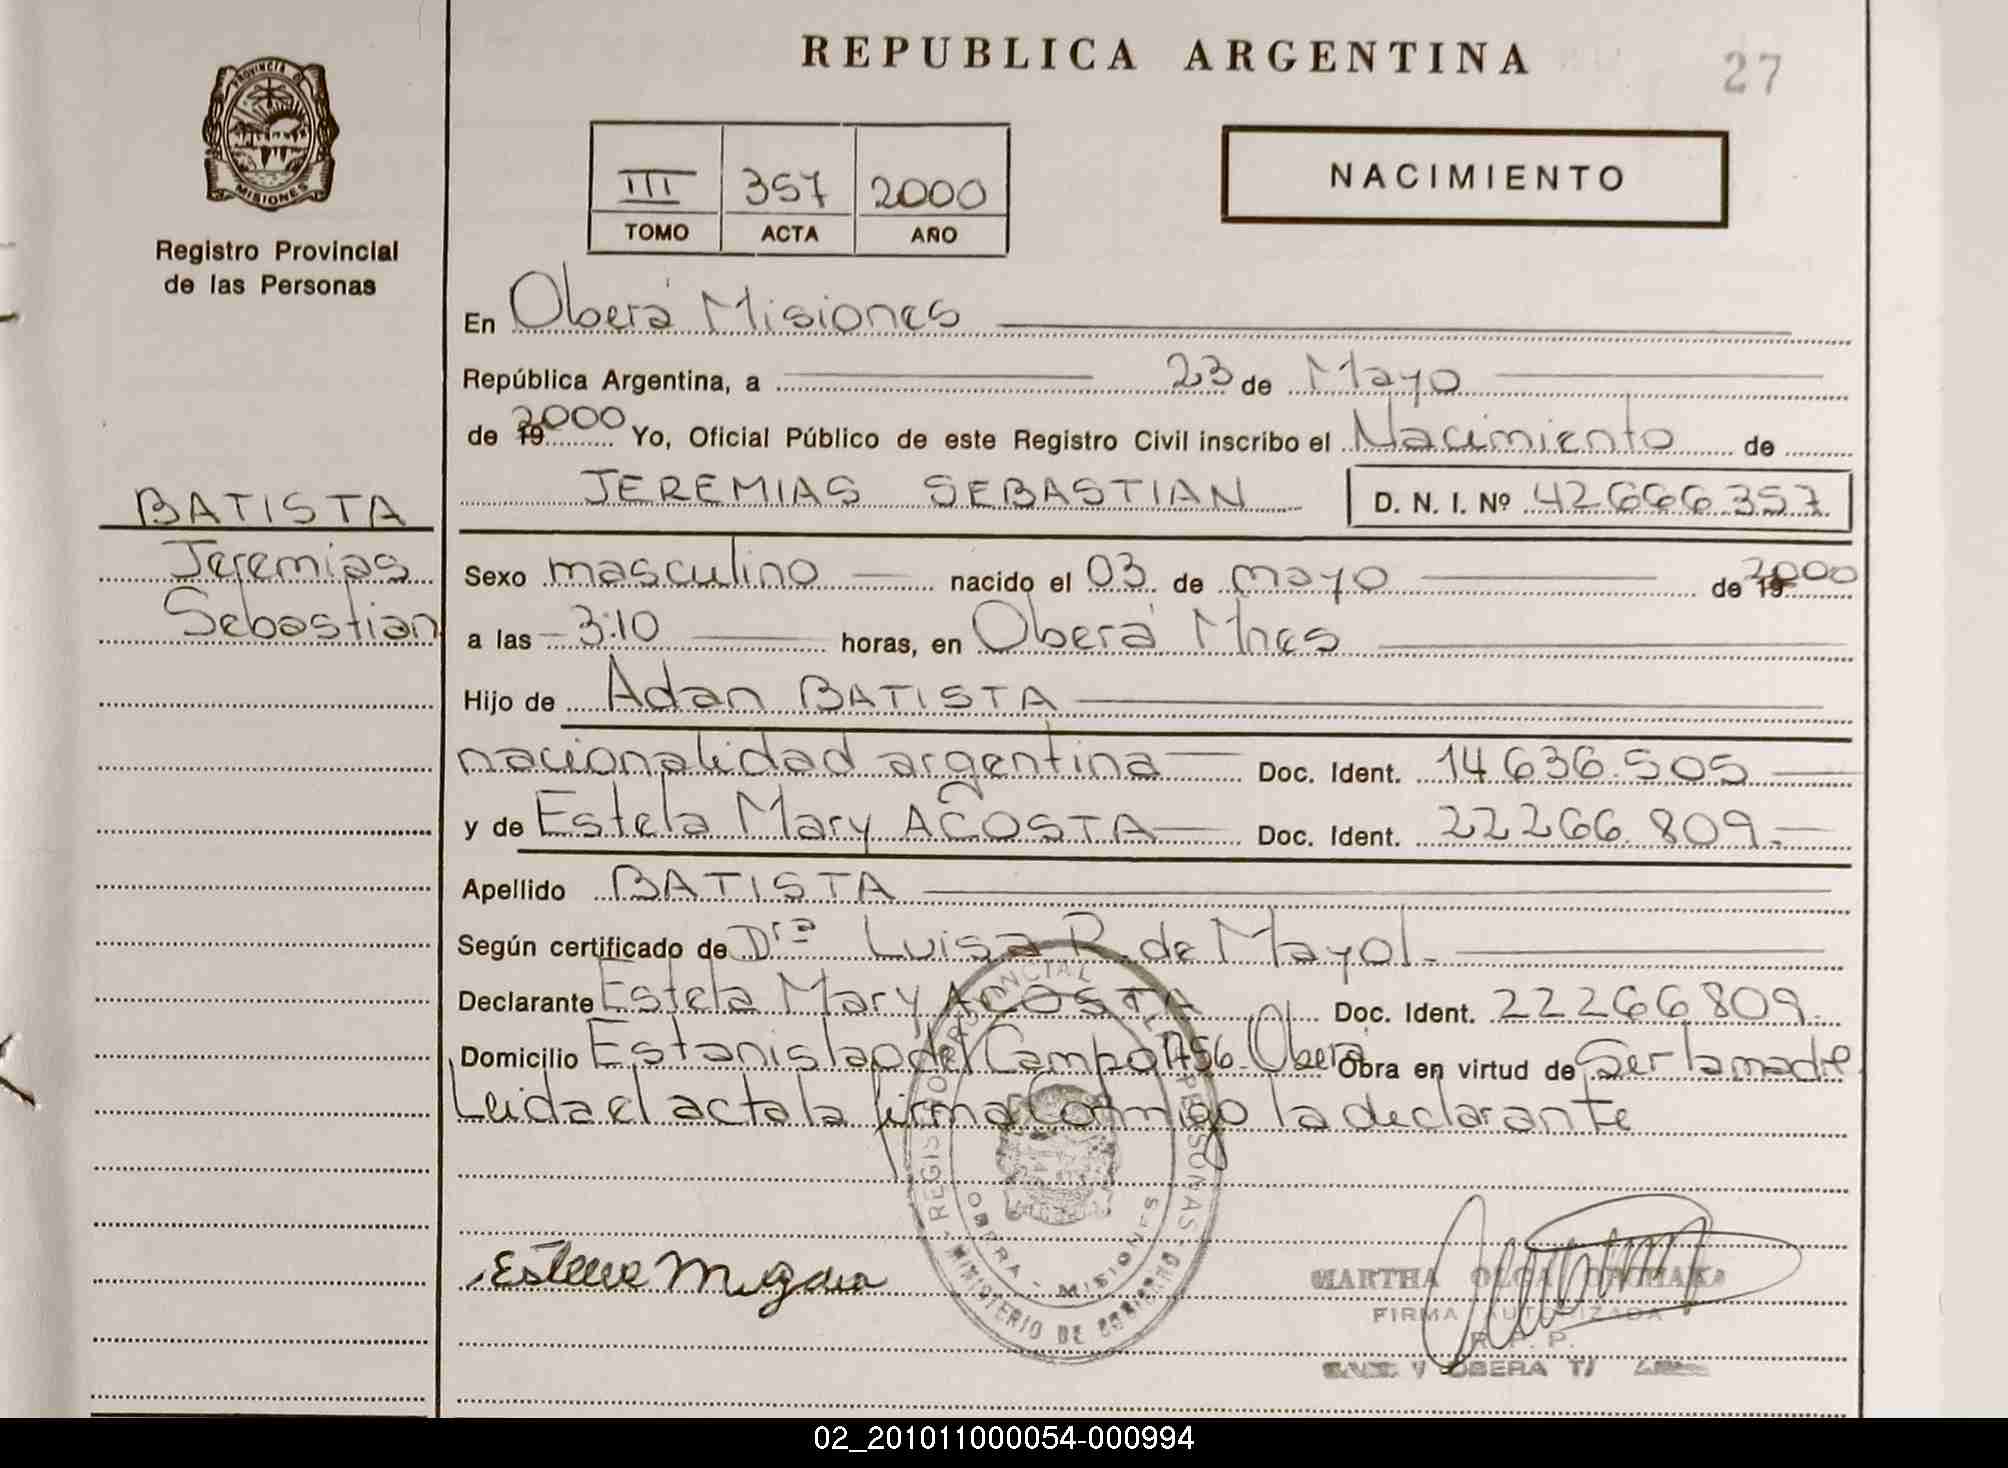 REPUBLICA ARGENTINA
27
PROVINCIA DE
MISIONES
Registro Provincial
de las Personas
III 357 2000
TOMO ACTA AÑO
NACIMIENTO
En Oberá Misiones
República Argentina, a 23 de Mayo
de 19 2000 Yo, Oficial Público de este Registro Civil inscribo el Nacimiento de
JEREMIAS SEBASTIAN D. N. I. Nº 42666.357
BATISTA
Jeremias
Sebastian
Sexo masculino nacido el 03 de mayo de 19 2000
a las 3:10 horas, en Oberá Mnes
Hijo de Adan BATISTA
nacionalidad argentina Doc. Ident. 14636.505
y de Estela Mary ACOSTA Doc. Ident. 22266.809.
Apellido BATISTA
Según certificado de Dra Luisa R. de Mayol.
Declarante Estela Mary ACOSTA Doc. Ident. 22266809.
Domicilio Estanislao del Campo 1456 Oberá Obra en virtud de Ser la madre
Leida el acta la firma conmigo la declarante
REGISTRO PROVINCIAL DE LAS PERSONAS
OBERA - MISIONES
MINISTERIO DE GOBIERNO
MARTHA OLGA
FIRMA AUTORIZADA
R. P. P.
OBERA
02_201011000054-000994